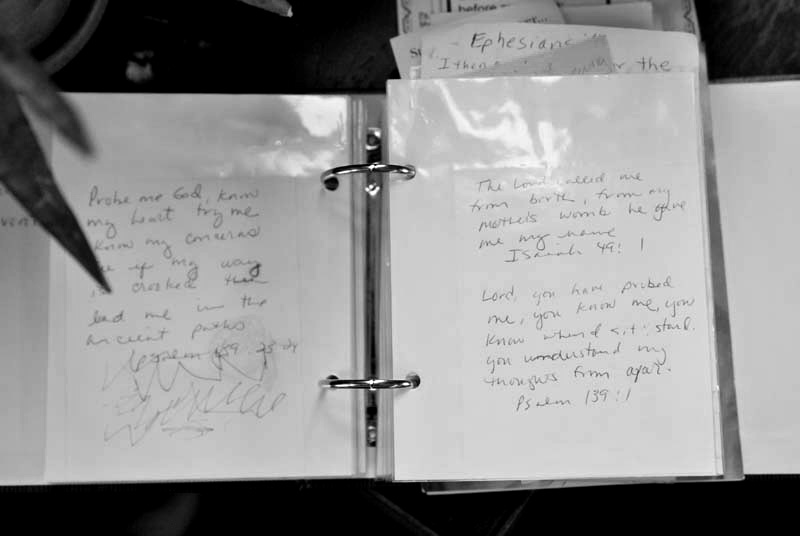 before
Ephesians
I the
the
Probe me God, know
my heart try me
know my concerns
if my way
is crooked then
lead me in the
ancient paths
Psalm 139: 23-24
The Lord called me
from birth, from my
mothers womb he gave
me my name
Isaiah 49: 1
Lord, you have probed
me, you know me, you
know when I sit & stand.
you understand my
thoughts from afar.
Psalm 139:1